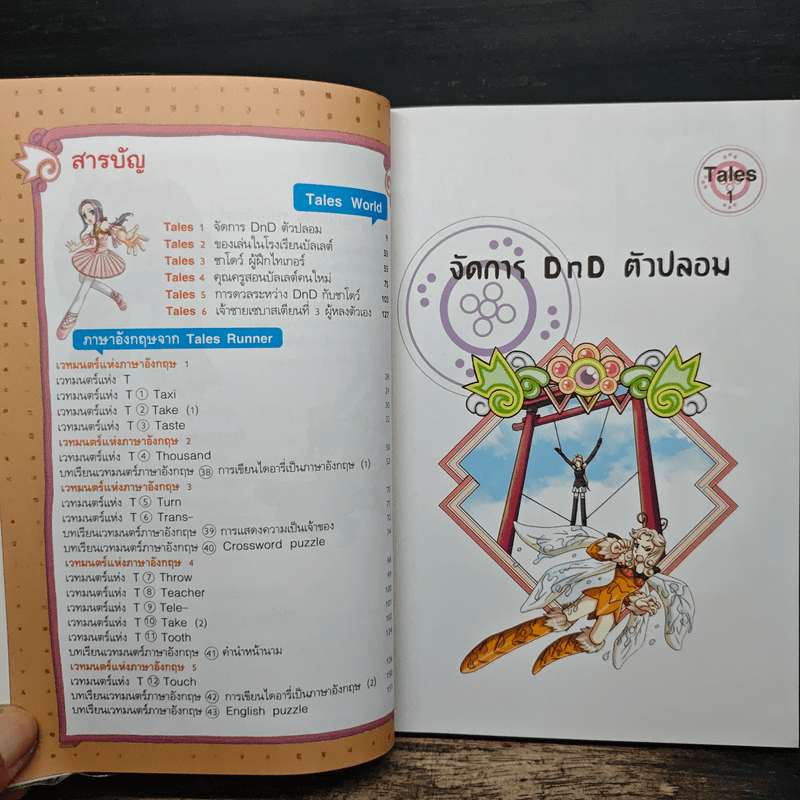 สารบัญ
Tales World
Tales 1 จัดการ DnD ตัวปลอม 9
Tales 2 ของเล่นในโรงเรียนบัลเลต์ 33
Tales 3 ชาโดว์ ผู้ฝึกไทเกอร์ 53
Tales 4 คุณครูสอนบัลเลต์คนใหม่ 75
Tales 5 การดวลระหว่าง DnD กับชาโดว์ 103
Tales 6 เจ้าชายเซบาสเตียนที่ 3 ผู้หลงตัวเอง 127
ภาษาอังกฤษจาก Tales Runner
เวทมนตร์แห่งภาษาอังกฤษ 1
เวทมนตร์แห่ง T 28
เวทมนตร์แห่ง T ① Taxi 29
เวทมนตร์แห่ง T ② Take (1) 30
เวทมนตร์แห่ง T ③ Taste 32
เวทมนตร์แห่งภาษาอังกฤษ 2
เวทมนตร์แห่ง T ④ Thousand 50
บทเรียนเวทมนตร์ภาษาอังกฤษ ㊳ การเขียนไดอารี่เป็นภาษาอังกฤษ (1) 52
เวทมนตร์แห่งภาษาอังกฤษ 3
เวทมนตร์แห่ง T ⑤ Turn 70
เวทมนตร์แห่ง T ⑥ Trans- 71
บทเรียนเวทมนตร์ภาษาอังกฤษ ㊴ การแสดงความเป็นเจ้าของ 72
บทเรียนเวทมนตร์ภาษาอังกฤษ ㊵ Crossword puzzle 74
เวทมนตร์แห่งภาษาอังกฤษ 4
เวทมนตร์แห่ง T ⑦ Throw 98
เวทมนตร์แห่ง T ⑧ Teacher
เวทมนตร์แห่ง T ⑨ Tele- 100
เวทมนตร์แห่ง T ⑩ Take (2) 101
เวทมนตร์แห่ง T ⑪ Tooth 102
บทเรียนเวทมนตร์ภาษาอังกฤษ ㊶ คำนำหน้านาม 124
เวทมนตร์แห่งภาษาอังกฤษ 5
เวทมนตร์แห่ง T ⑫ Touch
บทเรียนเวทมนตร์ภาษาอังกฤษ ㊷ การเขียนไดอารี่เป็นภาษาอังกฤษ (2)
บทเรียนเวทมนตร์ภาษาอังกฤษ ㊸ English puzzle
Tales
1
จัดการ DnD ตัวปลอม